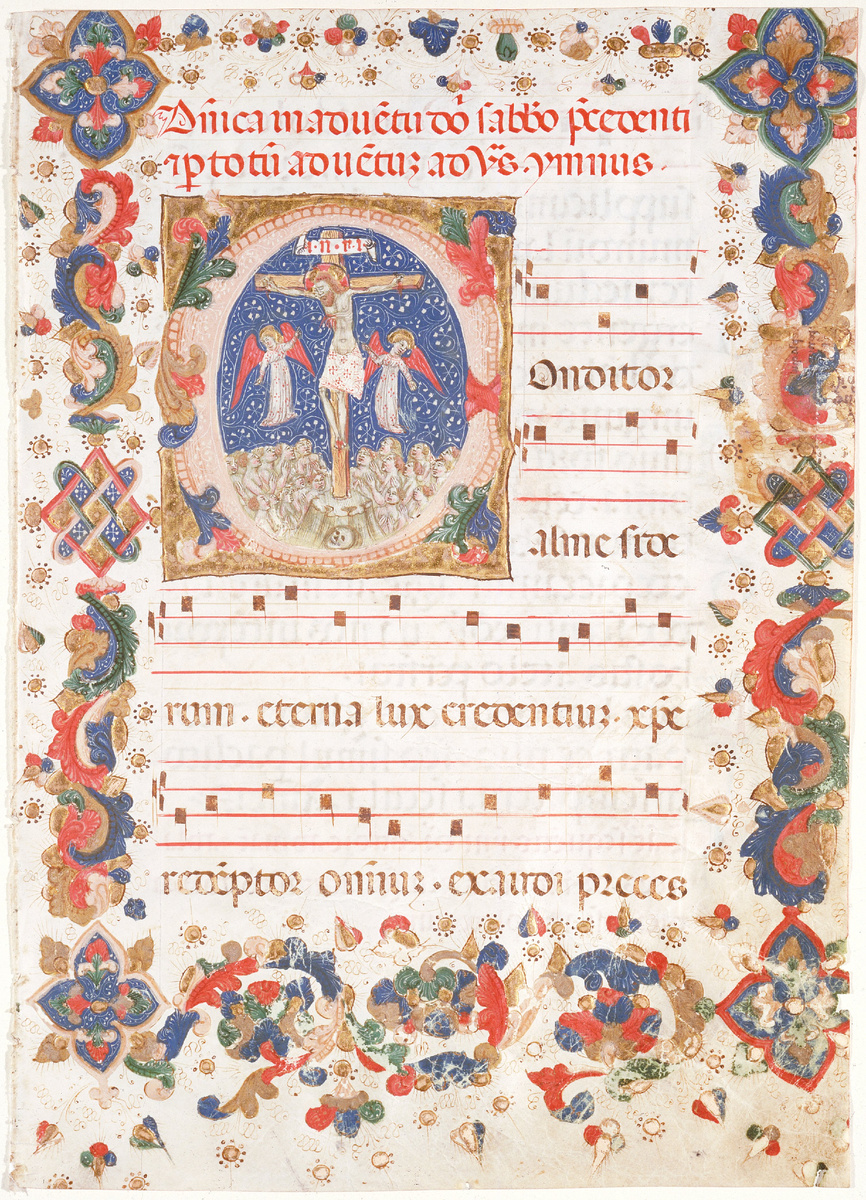 Dñica in aduētu dō sabbo p̄cedenti
⁊ ꝑ totū aduētuꝫ ad v̄s. ymnus.
·I·N·R·I·
COnditor
alme side
rum · eterna lux credentiuꝫ · xp̄e
redēptor om̄iuꝫ · exaudi preces